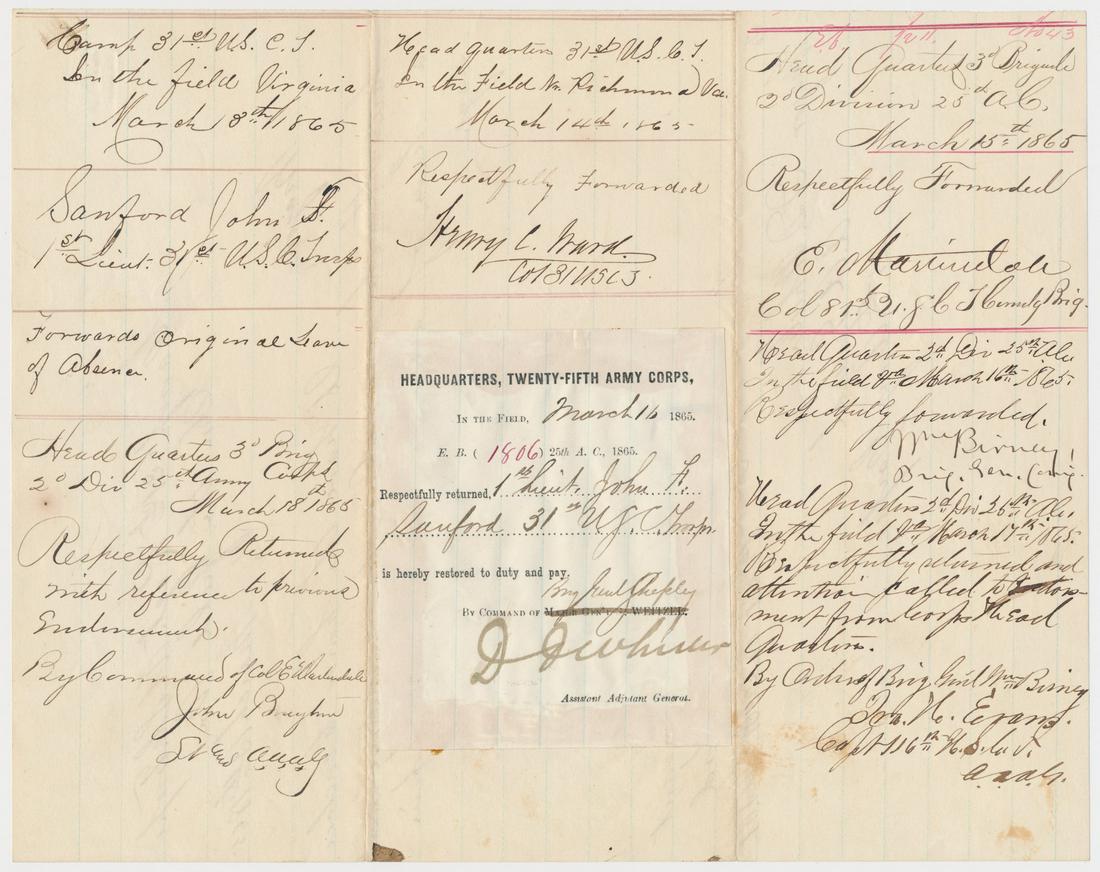 Camp 31st U.S. C. T.
In the field Virginia
March 13th 1865
Sanford John F.
1st Lieut. 31st U.S.C. Troops
Forwards Original Leave
of Absence.
Head Quarters 3d Brig
2d Div 25th Army Corps
March 18th 1865
Respectfully Returned
with reference to previous
Endorsement.
By Command of Col E Martindale
John Brughn
Lt and A.A.A.G
Head quarters 31st U.S.C.T.
In the Field Nr. Richmond Va.
March 14th 1865
Respectfully Forwarded
Henry C. Ward.
Col 31 USCT.
HEADQUARTERS, TWENTY-FIFTH ARMY CORPS,
IN THE FIELD, March 16 1865.
E. B. ( 1806 ) 25th A. C., 1865.
Respectfully returned, 1st Lieut. John F.
Sanford 31st U.S.C. Troops
is hereby restored to duty and pay.
Brig Genl Shepley
BY COMMAND OF MAJOR GEN'L WEITZEL.
D D Wheeler
Assistant Adjutant General.
No 43
Head Quarters 3d Brigade
2d Division 25th A.C.
March 15th 1865
Respectfully Forwarded
E. Martindale
Col 81st U.S.C.T Comdg Brig.
Head Quarters 2d Div 25th A.C.
In the field Va March 16th 1865.
Respectfully forwarded.
Wm Birney,
Brig. Gen. Comg.
Head Quarters 2d Div 25th A.C.
In the field Va March 17th 1865.
Respectfully returned and
attention called to Endorse-
ment from Corps Head
Quarters.
By Order of Brig Genl Wm Birney
Ira H. Evans.
Capt 116th U.S.C.T.
a.a.a.G.